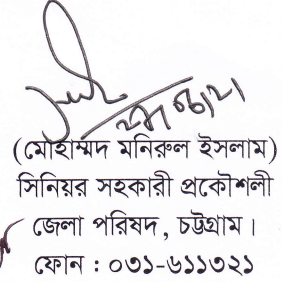 (মোহাম্মদ মনিরুল ইসলাম)
সিনিয়র সহকারী প্রকৌশলী
জেলা পরিষদ, চট্টগ্রাম।
ফোন : ০৩১-৬১১৩২১